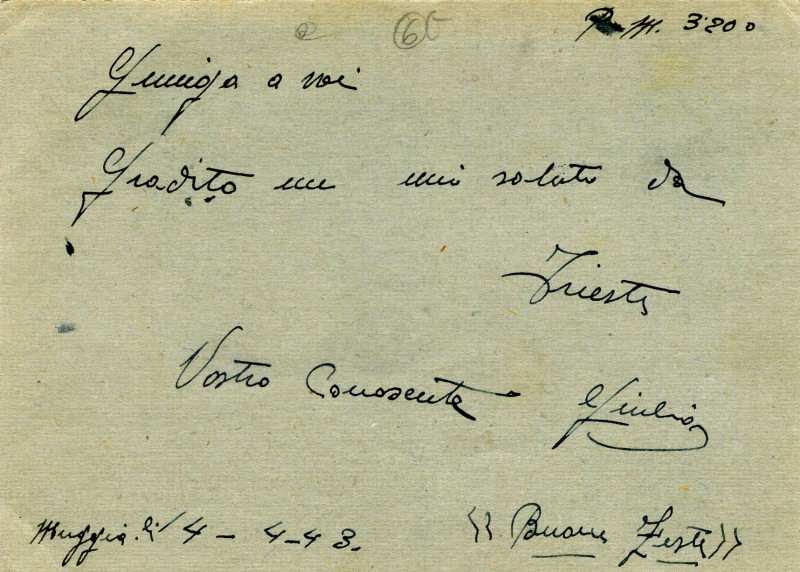 P.M. 3200
Giunga a voi
Gradito un mio saluto da
Trieste
Vostro Conoscente Giulio
Muggia. li 4 - 4-43.
<< Buone Feste >>